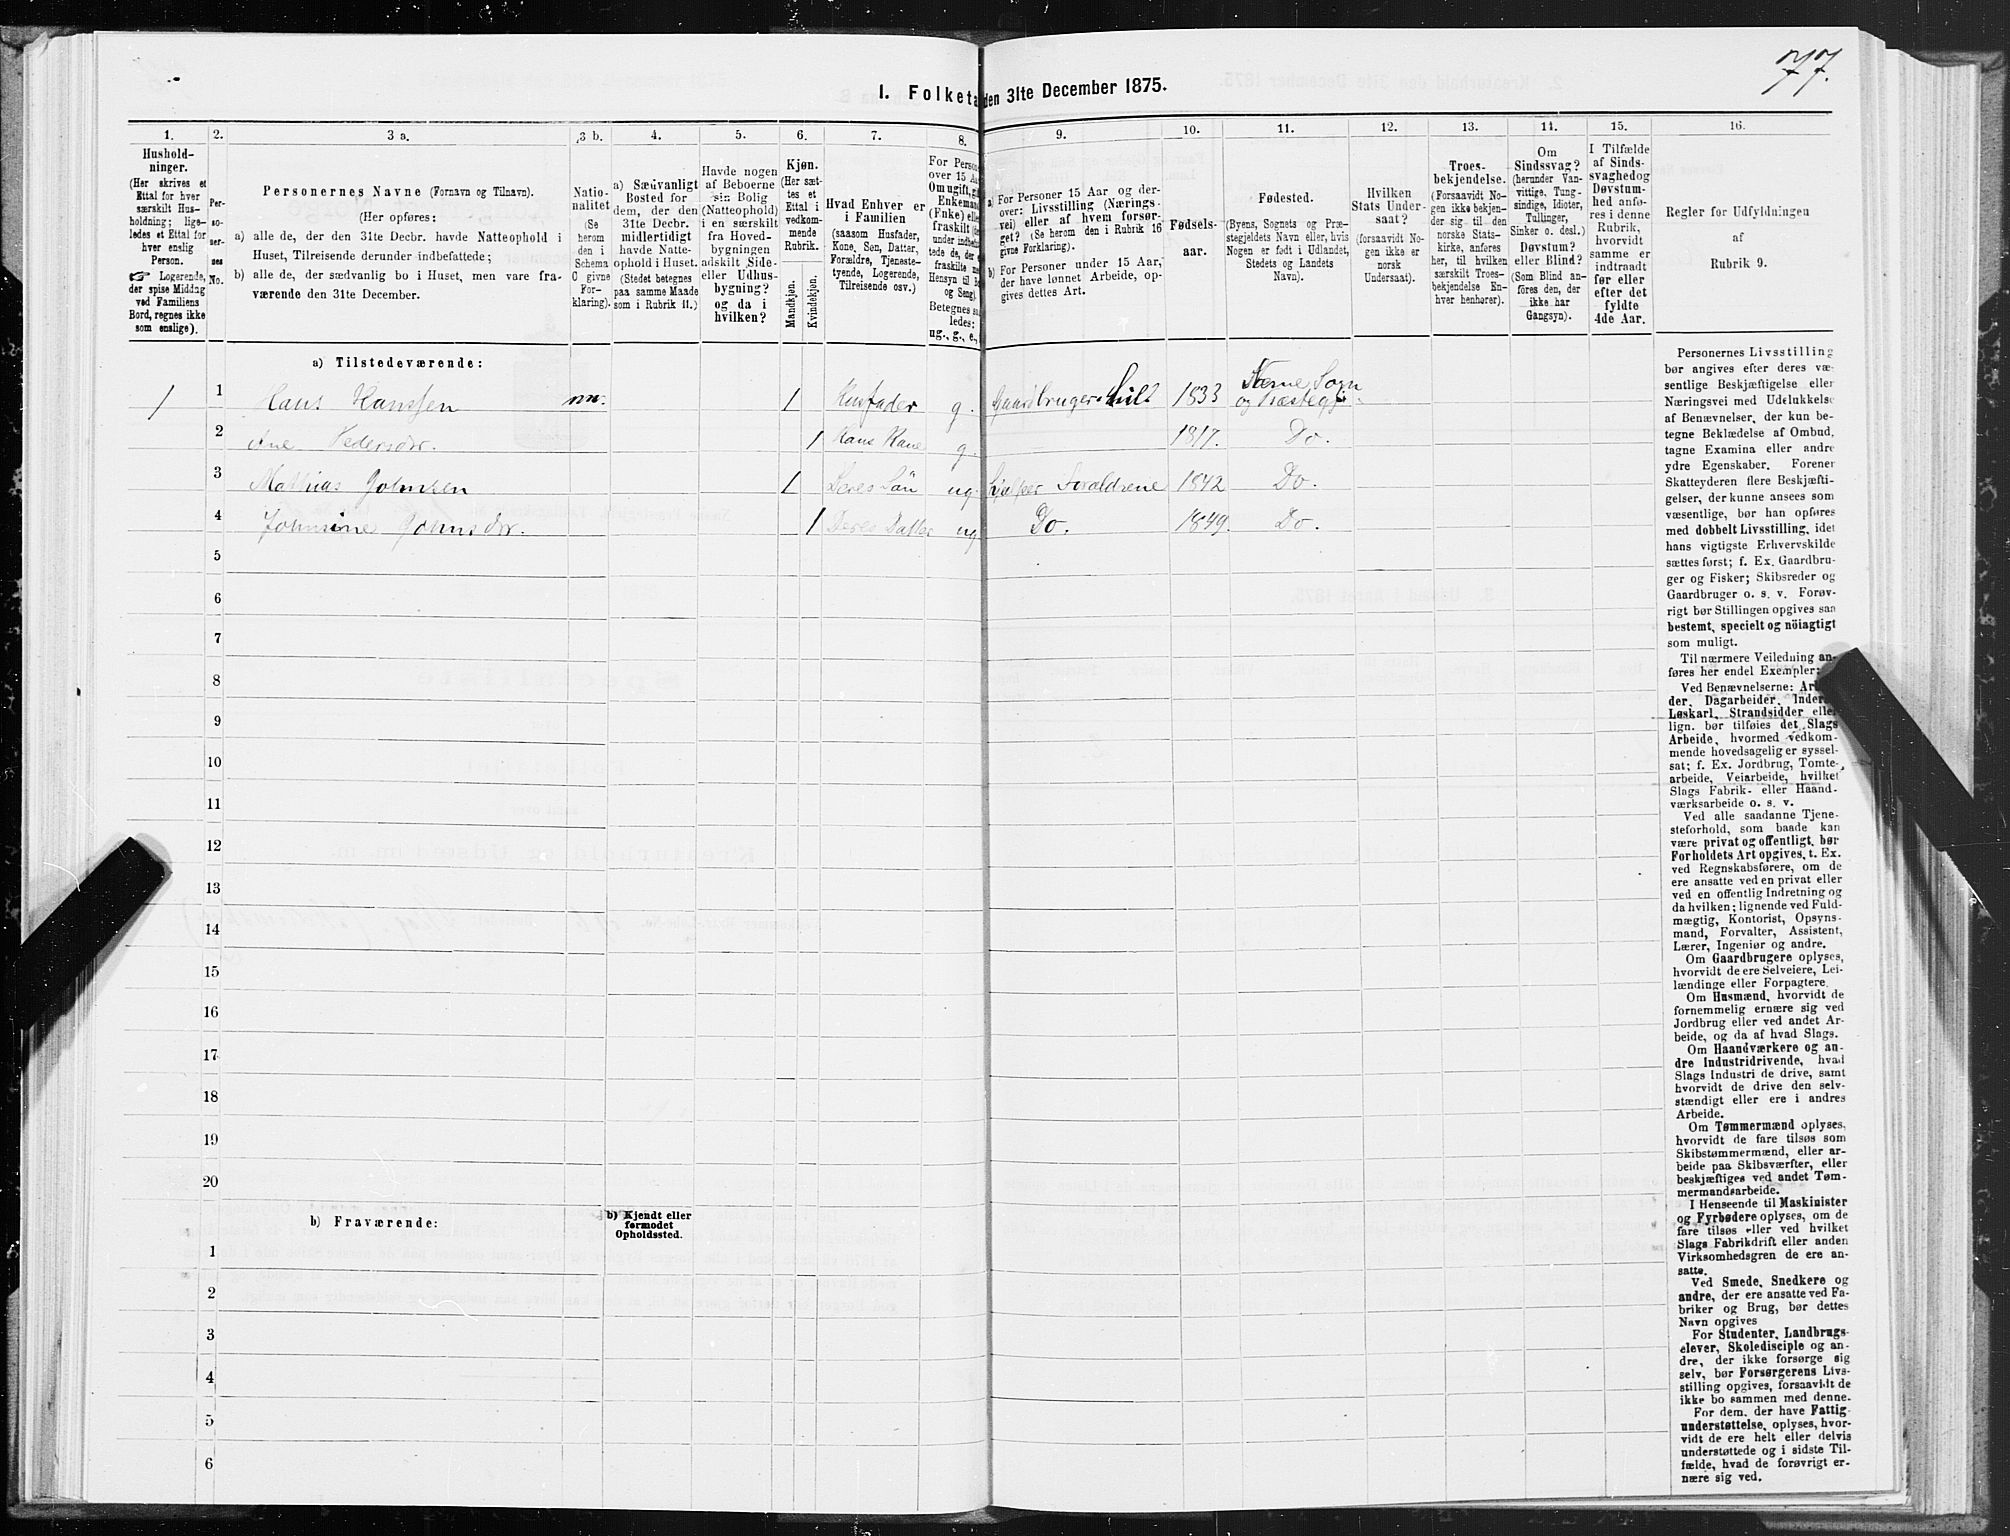 777.
I. Folketa den 31te December 1875.
1.
2.
3 a.
3 b.
4.
5.
6.
7.
8.
9.
10.
11.
12.
13.
14.
15.
16.
Hushold-
ninger.
(Her skrives et
Ettal for hver
særskilt Hus-
holdning; lige-
ledes et Ettal for
hver enslig
Person.
☞ Logerende,
der spise Middag
ved Familiens
Bord, regnes ikke
som enslige).
Per-
so-
ner-
nes
No.
Personernes Navne (Fornavn og Tilnavn).
(Her opføres:
a) alle de, der den 31te Decbr. havde Natteophold i
Huset, Tilreisende derunder indbefattede;
b) alle de, der sædvanlig bo i Huset, men vare fra-
værende den 31te December.
Natio-
nalitet
(Se
herom
den i
Schema
O givne
For-
klaring).
a) Sædvanligt
Bosted for
dem, der den
31te Decbr.
midlertidigt
havde Natte-
ophold i Huset.
(Stedet betegnes
paa samme Maade
som i Rubrik 11.)
Havde nogen
af Beboerne
sin Bolig
(Natteophold)
i en særskilt
fra Hoved-
bygningen
adskilt Side-
eller Udhus-
bygning?
og da i
hvilken?
Kjøn.
(Her sæt-
tes et
Ettal i
vedkom-
mende
Rubrik.
Mandkjøn.
Kvindekjøn.
Hvad Enhver er
i Familien
(saasom Husfader,
Kone, Søn, Datter,
Forældre, Tjeneste-
tyende, Logerende,
Tilreisende osv.)
For Person
over 15 Aa
Om ugift, g
Enkeman
(Fnke) elle
fraskilt
under indbef
tede de, der
fraskilte me
Hensyn til Bo
og Seng).
Betegnes sa
ledes:
ug., g., e.,
a) For Personer 15 Aar og der-
over: Livsstilling (Nærings-
vei) eller af hvem forsør-
get? (Se herom den i Rubrik 16
givne Forklaring).
b) For Personer under 15 Aar,
der have lønnet Arbeide, op-
gives dettes Art.
Fødsels-
aar.
Fødested.
(Byens, Sognets og Præ-
stegjeldets Navn eller, hvis
Nogen er født i Udlandet,
Stedets og Landets
Navn).
Hvilken
Stats Under-
saat?
(forsaavidt No-
gen ikke er
norsk
Undersaat).
Troes-
bekjendelse.
(Forsaavidt No-
gen ikke bekjen-
der sig til den
norske Stats-
kirke, anføres
her, til hvilken
særskilt Troes-
bekjendelse En-
hver henhører).
Om
Sindssvag?
(herunder Van-
vittige, Tung-
sindige, Idioter,
Tullinger,
Sinker o. desl.)
Døvstum?
eller Blind?
(Som Blind an-
føres den, der
ikke har
Gangsyn).
I Tilfælde
af Sinds-
svaghed og
Døvstum-
hed anfø-
res i denne
Rubrik,
hvorvidt
samme er
indtraadt
før eller
efter det
fyldte
4de Aar.
Regler for Udfyldningen
af
Rubrik 9.
a) Tilstedeværende:
1 1 Hans Hanssen nn. 1 Husfader g. Gaardbruger 1833 Sogn
og Præstegj.
2 Ane Pedersdr. 1 Hans Kone g. 1817. Do.
3 Mathias Johnsen 1 Deres Søn ug. hjælper Foraldrene 1842 Do.
4 Johnsine Johnsdr. 1 Deres Datter ug Do. 1849. Do.
5
6
7
8
9
10
11
12
13
14
15
16
17
18
19
20
b) Fraværende:
b) Kjendt eller
formodet
Opholdssted.
1
2
3
4
5
6
Personernes Livsstilling
bør angives efter deres væ-
sentlige Beskjæftigelse eller
Næringsvei med Udelukkelse
af Benævnelser, der kun be-
tegne Beklædelse af Ombud,
tagne Examina eller andre
ydre Egenskaber. Forener
Skatteyderen flere Beskjæfti-
gelser, der kunne ansees som
væsentlige, bør han opføres
med dobbelt Livsstilling, idet
hans vigtigste Erhvervskilde
sættes først; f. Ex. Gaardbru-
ger og Fisker; Skibsreder og
Gaardbruger o. s. v. Forøv-
rigt bør Stillingen opgives saa
bestemt, specielt og nöiagtigt
som muligt.
Til nærmere Veiledning an-
føres her endel Exempler:
Ved Benævnelserne: Ar
der, Dagarbeider, Inder
Løskarl, Strandsidder eller
lign. bør tilføies det Slags
Arbeide, hvormed vedkom-
mende hovedsagelig er syssel-
sat; f. Ex. Jordbrug, Tomte-
arbeide, Veiarbeide, hvilket
Slags Fabrik- eller Haand-
værksarbeide o. s. v.
Ved alle saadanne Tjene-
steforhold, som baade kan
være privat og offentligt, bør
Forholdets Art opgives, t. Ex.
ved Regnskabsførere, om de
ere ansatte ved en privat eller
ved en offentlig Indretning og
da hvilken; lignende ved Fuld-
mægtig, Kontorist, Opsyns-
mand, Forvalter, Assistent,
Lærer, Ingeniør og andre.
Om Gaardbrugere oplyses,
hvorvidt de ere Selveiere, Lei-
lændinge eller Forpagtere.
Om Husmænd, hvorvidt de
fornemmelig ernære sig ved
Jordbrug eller ved andet Ar-
beide, og da af hvad Slags.
Om Haandværkere og an-
dre Industridrivende, hvad
Slags Industri de drive, samt
hvorvidt de drive den selv-
stændigt eller ere i andres
Arbeide.
Om Tømmermænd oplyses,
hvorvidt de fare tilsøs som
Skibstømmermænd, eller ar-
beide paa Skibsværfter, eller
beskjæftiges ved andet Tøm-
mermandsarbeide.
I Henseende til Maskinister
og Fyrbødere oplyses, om de
fare tilsøs eller ved hvilket
Slags Fabrikdrift eller anden
Virksomhedsgren de ere an-
satte.
Ved Smede, Snedkere og
andre, der ere ansatte ved Fa-
briker og Brug, bør dettes
Navn opgives
For Studenter, Landbrugs-
elever, Skoledisciple og an-
dre, der ikke forsørge sig
selv, bør Forsørgerens Livs-
stilling opgives, forsaavidt de
ikke bo sammen med denne.
For dem, der have Fattig-
understøttelse, oplyses, hvor-
vidt de ere helt eller delvis
understøttede og i sidste Til-
fælde, hvad de forøvrigt er-
nære sig ved.